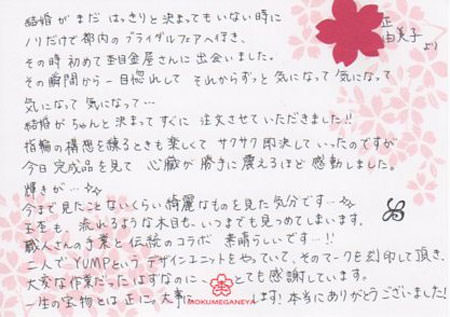 結婚がまだ はっきりと決まってもいない時に
ノリだけで都内のブライダルフェアへ行き、
その時 初めて杢目金屋さんに出会いました。
その瞬間から一目惚れして それからずっと 気になって 気になって
気になって 気になって…
結婚が ちゃんと 決まって すぐに 注文させて いただきました!!
指輪の構想を練るときも楽しくて サクサク 即決していったのですが
今日 完成品を見て 心臓が 勝手に 震えるほど 感動しました。
輝きが…
今まで見たことないくらい 綺麗なものを見た気分です…
も、流れるような木目も、いつまでも見つめてしまいます。
職人さんの手業と伝統のコラボ 素晴らしいです…!!
二人で YUMPという デザインユニットをやっていて、そのマークを刻印して頂き、
大変な作業だったはずなのに… とても感謝しています。
一生の宝物とは 正に。大事に します! 本当にありがとうございました!
正
由美子
より
MOKUMEGANEYA